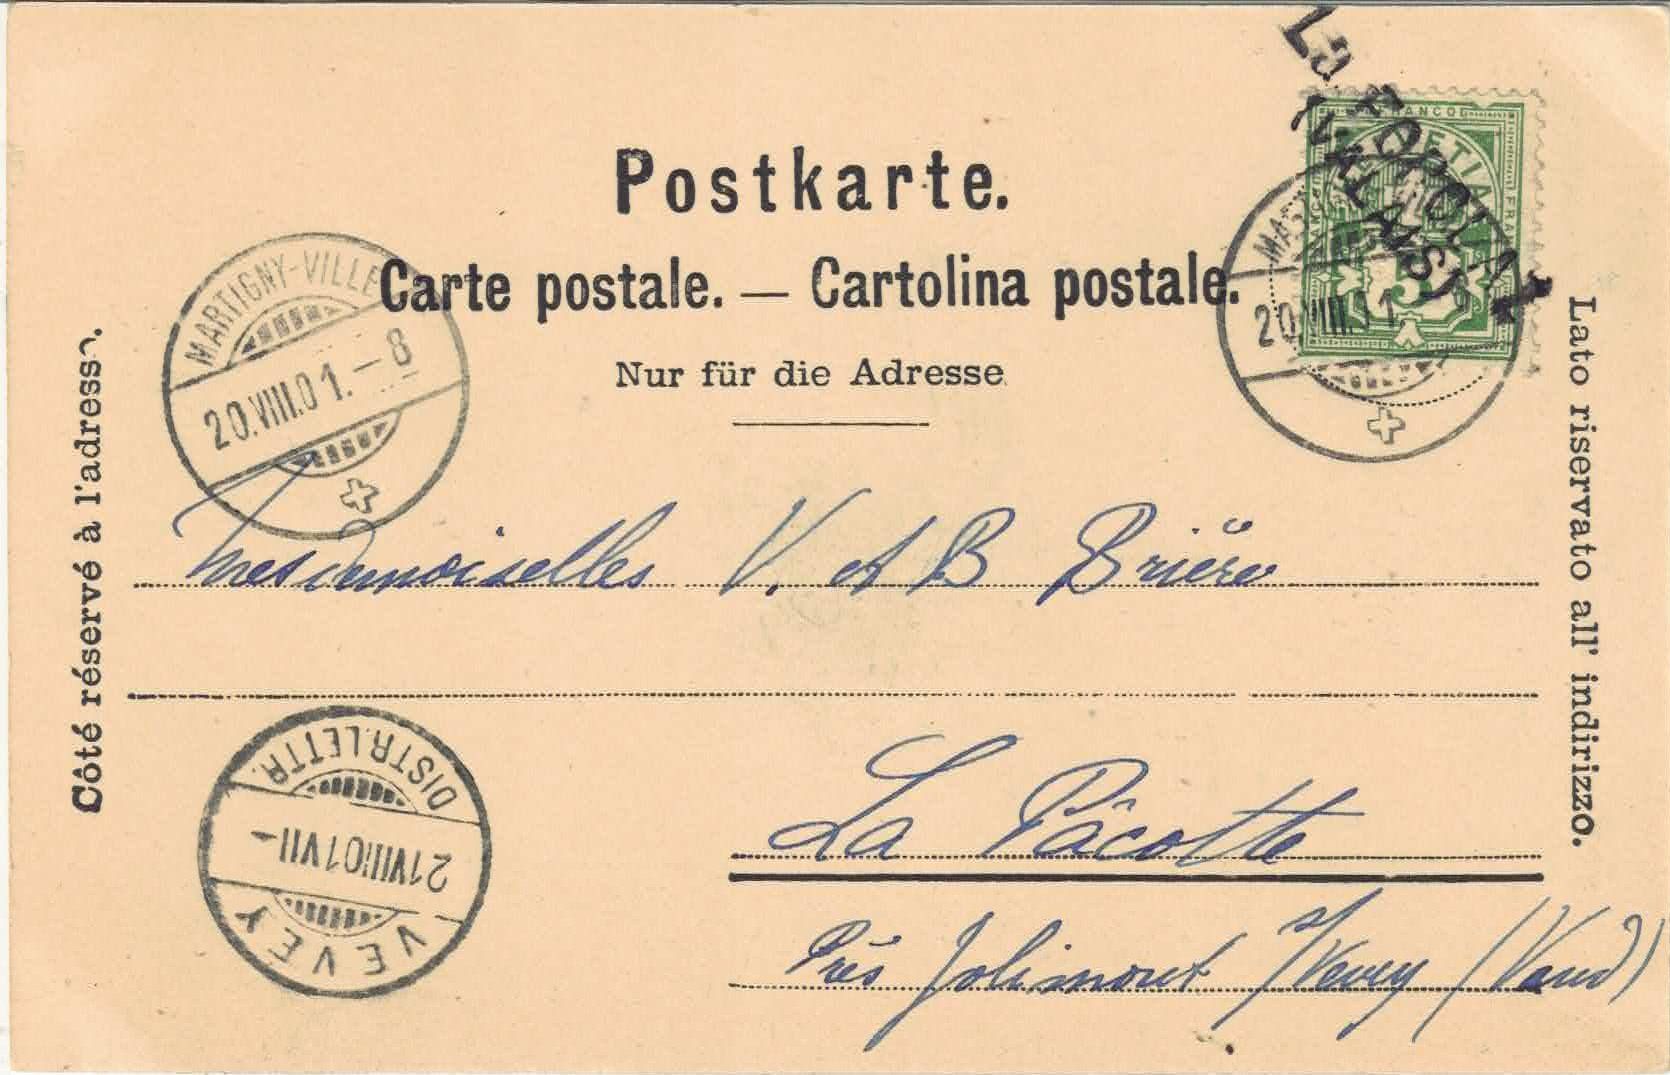 La FORCLAZ
(VALAIS)
FRANCO
HELVETIA
5
Postkarte.
Carte postale. — Cartolina postale.
Nur für die Adresse
Côté réservé à l'adresse.
Lato riservato all' indirizzo.
MARTIGNY-VILLE
20.VIII.01.–8
20.VIII.01
Mesdemoiselles V. et B Brière
La Pâcotte
Près Jolimont s/Vevey (Vaud)
DISTR.LETTR.
21VIII01VII-
VEVEY